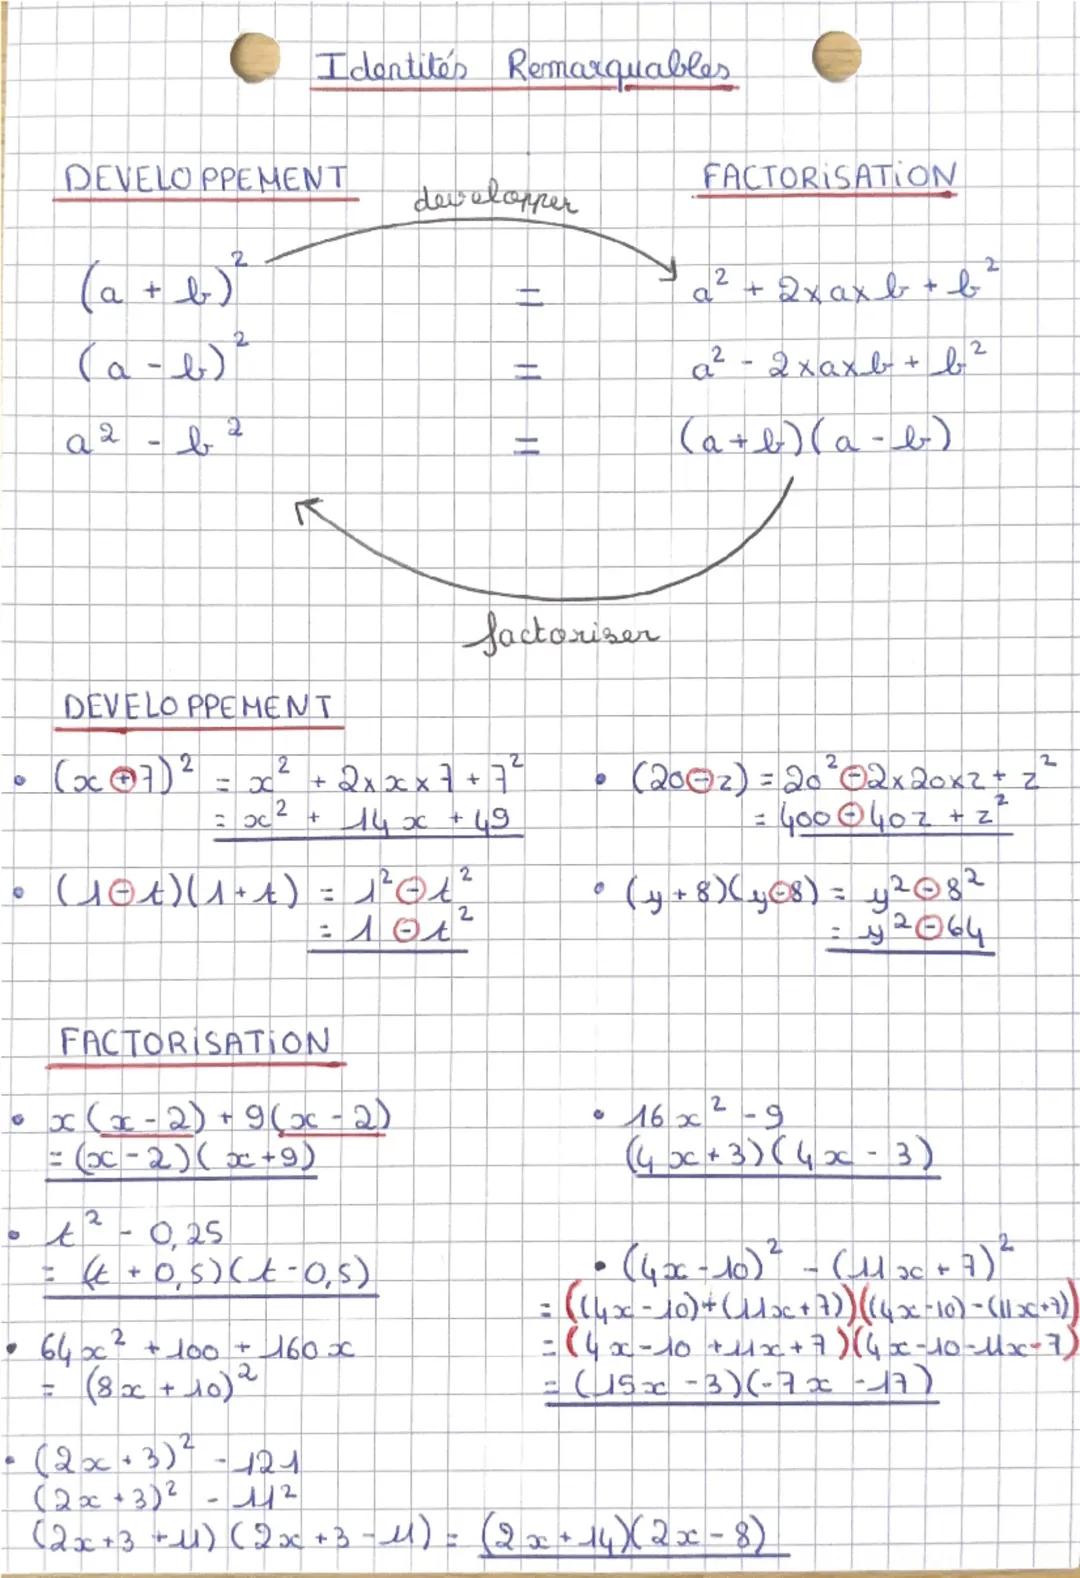 Identités Remarquables
DEVELOPPEMENT
developper
FACTORISATION
(a + b)² = a² + 2×a×b + b²
(a - b)² = a² - 2×a×b + b²
a² - b² = (a+b)(a-b)
factoriser
DEVELOPPEMENT
• (x+7)² = x² + 2×x×7+7²
= x² + 14x + 49
• (20-z) = 20²-2×20×z+z²
= 400-40z+z²
• (1-t)(1+t) = 1²-t²
= 1-t²
• (y+8)(y-8) = y²-8²
= y²-64
FACTORISATION
• x(x-2)+9(x-2)
= (x-2)(x+9)
• 16x²-9
(4x+3)(4x-3)
• t² - 0,25
= (t+0,5)(t-0,5)
• (4x-10)² - (11x+7)²
= ((4x-10)+(11x+7))((4x-10)-(11x+7))
= (4x-10+11x+7)(4x-10-11x-7)
= (15x-3)(-7x-17)
• 64x² + 100 + 160x
= (8x+10)²
• (2x+3)² - 121
(2x+3)² - 11²
(2x+3+11)(2x+3-11) = (2x+14)(2x-8)